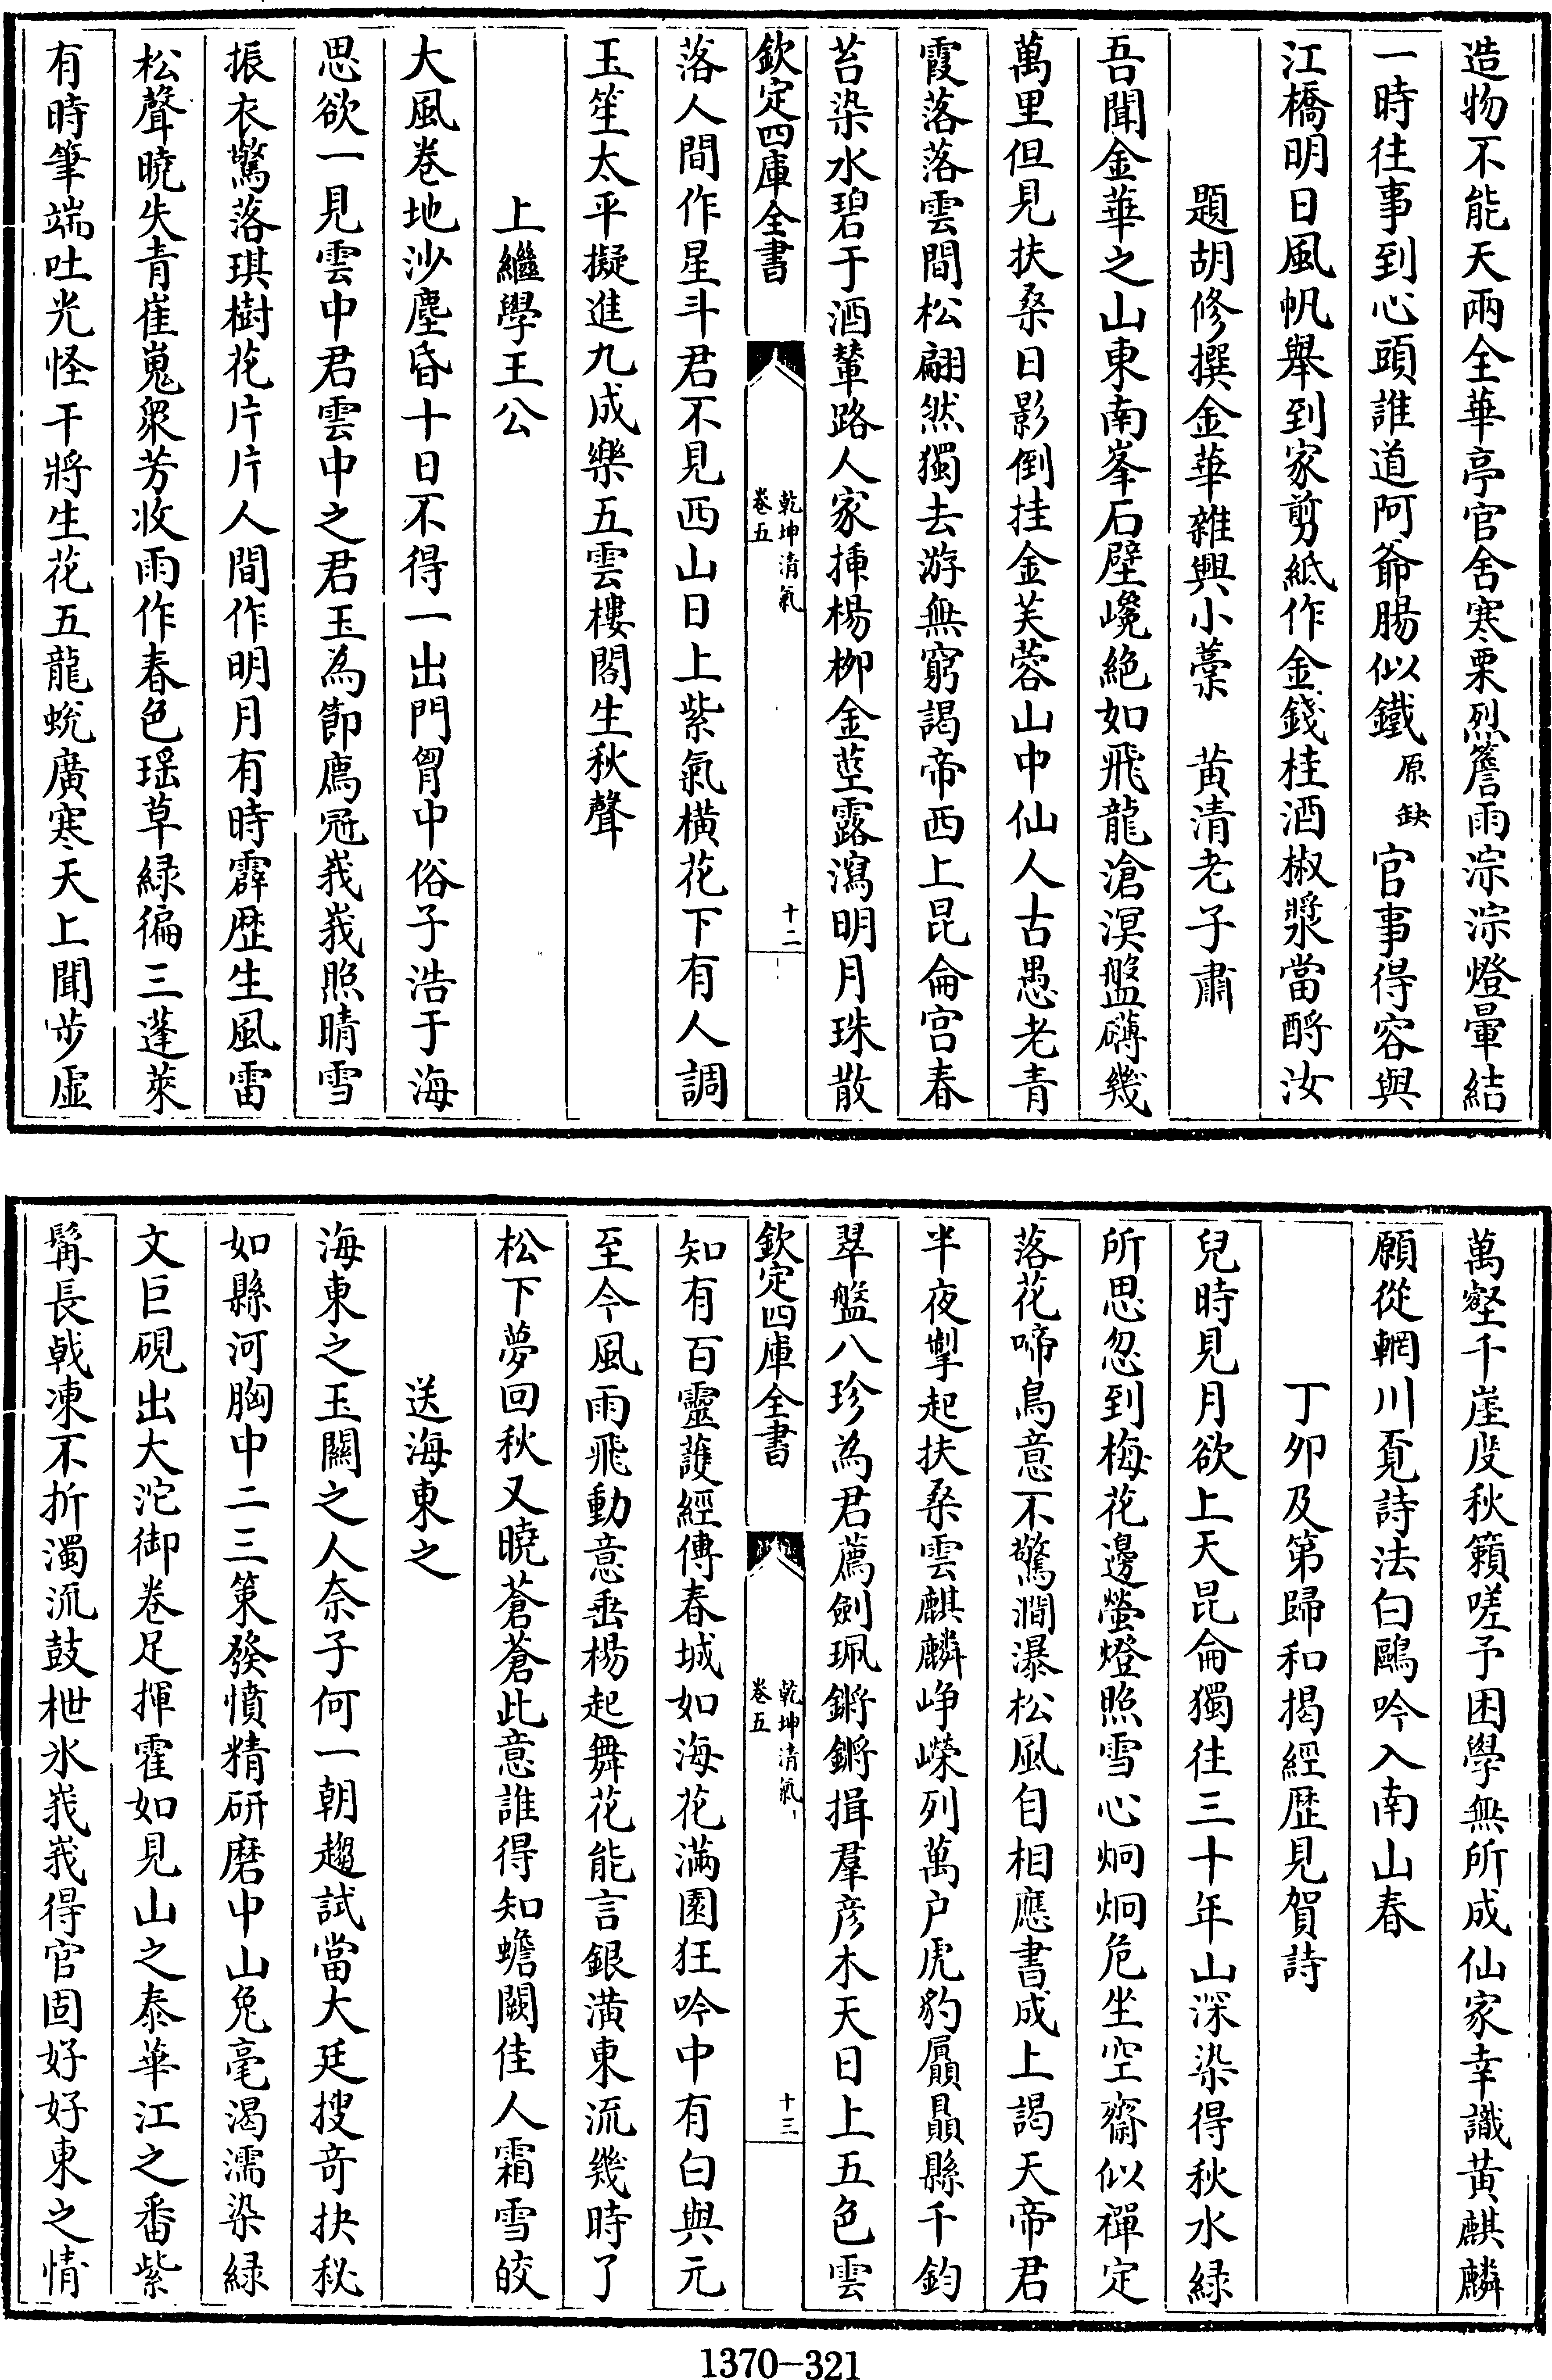 造物不能天兩全華亭官舍寒栗烈簷雨淙淙燈暈結
一時往事到心頭誰道阿爺腸似鐵原缺官事得容與
江橋明日風帆舉到家剪紙作金錢桂酒椒漿當酹汝
題胡修撰金華雜興小藁　黃清老子肅
吾聞金華之山東南峯石壁巉絶如飛龍滄溟盤礴幾
萬里但見扶桑日影倒挂金芙蓉山中仙人古愚老青
霞落落雲間松翩然獨去游無窮謁帝西上昆侖宫春
苔染水碧于酒輦路人家插楊栁金莖露瀉明月珠散
欽定四庫全書
乾坤清氣
卷五
十二
落人間作星斗君不見西山日上紫氣横花下有人調
玉笙太平擬進九成樂五雲樓閣生秋聲
上繼學王公
大風卷地沙塵昏十日不得一出門胷中俗子浩于海
思欲一見雲中君雲中之君玉為節廌冠峩峩照晴雪
振衣驚落琪樹花片片人間作明月有時霹歴生風雷
松聲曉失青崔嵬衆芳收雨作春色瑶草緑徧三蓬萊
有時筆端吐光怪干將生花五龍蛻廣寒天上聞步虚
萬壑千崖度秋籟嗟予困學無所成仙家幸識黃麒麟
願從輞川覔詩法白鷗吟入南山春
丁夘及第歸和揭經歴見賀詩
兒時見月欲上天昆侖獨往三十年山深染得秋水緑
所思忽到梅花邊螢燈照雪心炯炯危坐空齋似禪定
落花啼鳥意不驚澗瀑松風自相應書成上謁天帝君
半夜掣起扶桑雲麒麟崢嶸列萬户虎豹贔屭縣千鈞
翠盤八珍為君薦劍珮鏘鏘揖羣彦木天日上五色雲
欽定四庫全書
乾坤清氣
卷五
十三
知有百靈護經傳春城如海花滿園狂吟中有白與元
至今風雨飛動意垂楊起舞花能言銀潢東流幾時了
松下夢回秋又曉蒼蒼此意誰得知蟾闕佳人霜雪皎
送海東之
海東之玉關之人奈子何一朝趨試當大廷搜奇抉秘
如縣河胸中二三策發憤精研磨中山兔毫渴濡染緑
文巨硯出大沱御卷足揮霍如見山之泰華江之番紫
髯長戟凍不折濁流鼓枻氷峩峩得官固好好東之情
1370-321